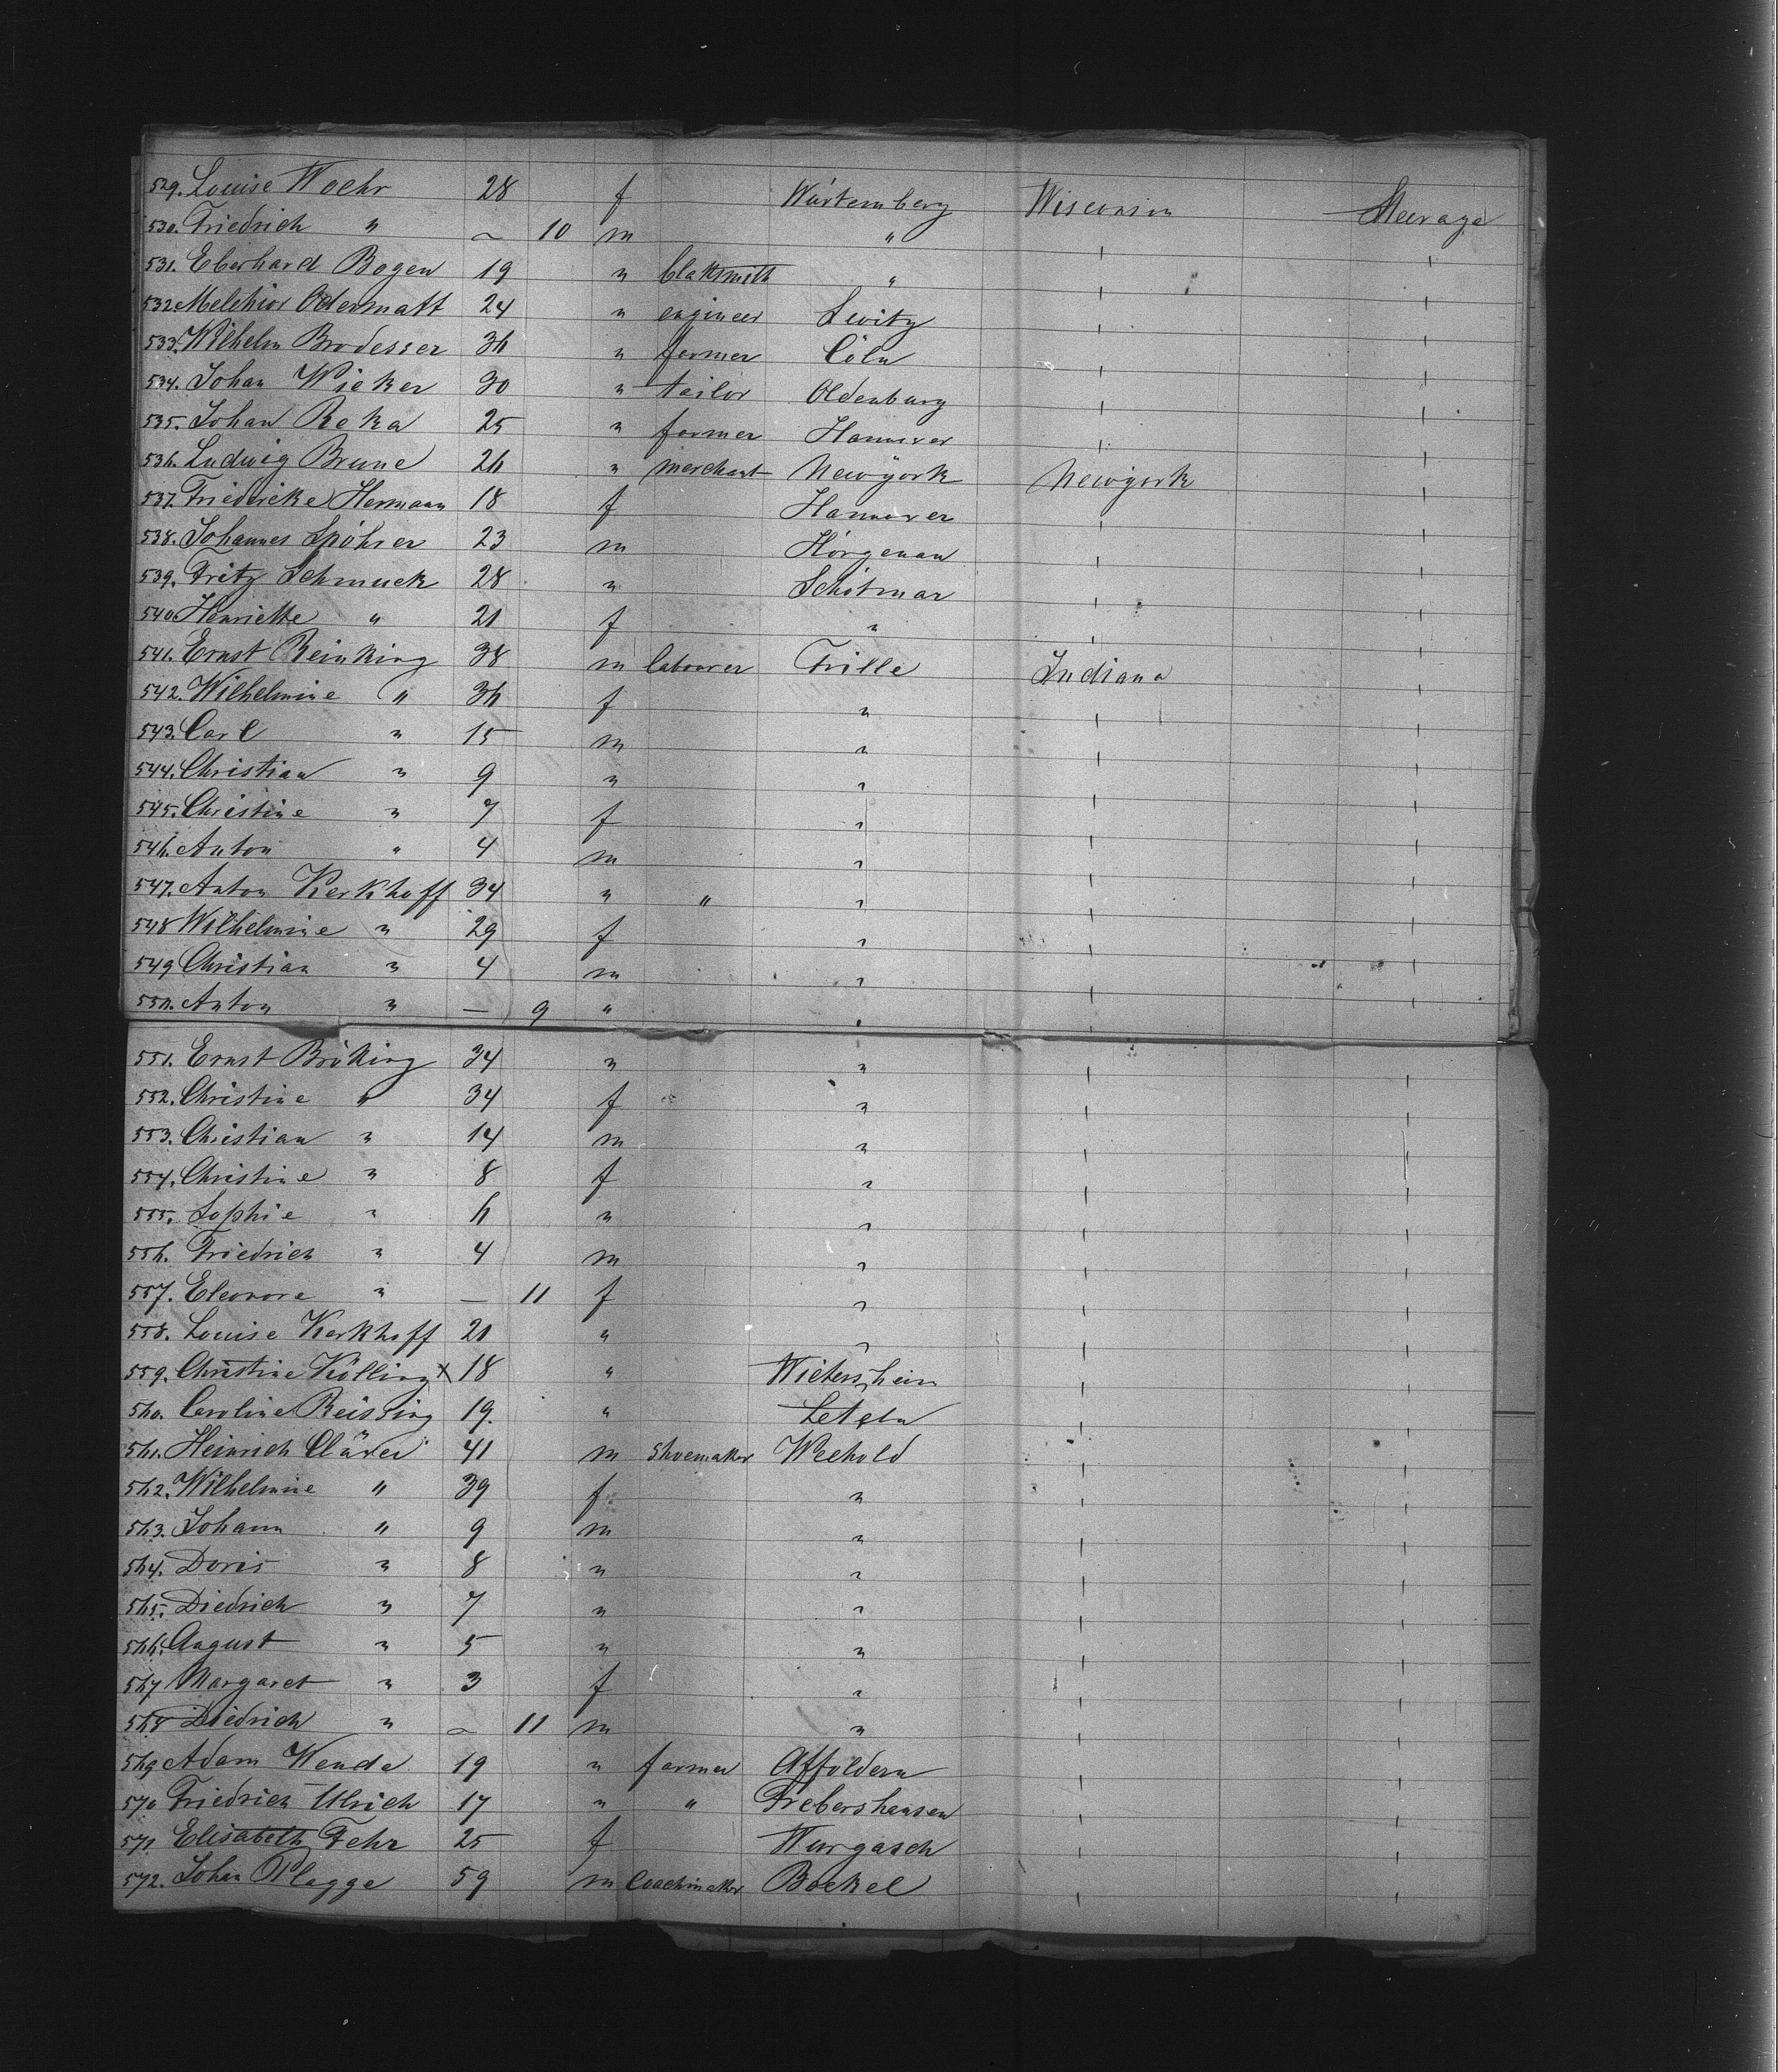 529. Louise Woehr 28 f Würtemberg Wisconsin Steerage
530. Friedrich " – 10 m " ı ı
531. Eberhard Bogen 19 " blaksmith " ı ı
532 Melchior Odermatt 24 " engineer Switz ı ı
533. Wilhelm Brodesser 36 " farmer Cöln ı ı
534. Johan Wieker 30 " tailor Oldenburg ı ı
535. Johan Reka 25 " farmer Hannover ı ı
536. Ludwig Brune 26 " merchant Newyork Newyork ı
537. Friedericke Hermann 18 f Hannover ı ı
538. Johannes Spöhrer 23 m Hörgenau ı ı
539. Fritz Schmuck 28 " Schötmar ı ı
540. Henriette " 21 f " ı ı
541. Ernst Reinking 38 m labourer Frille Indiana ı
542. Wilhelmine " 36 f " ı ı
543. Carl " 15 m " ı ı
544. Christian " 9 " " ı ı
545. Christine " 7 f " ı ı
546. Anton " 4 m " ı ı
547. Anton Kerkhoff 34 " " " ı ı
548 Wilhelmine " 29 f " ı ı
549 Christian " 4 m " ı ı
550. Anton " — 9 " " ı ı
551. Ernst Bröking 34 " " ı ı
552. Christine " 34 f " ı ı
553. Christian " 14 m " ı ı
554. Christine " 8 f " ı ı
555. Sophie " 6 " " ı ı
556. Friedrich " 4 m " ı ı
557. Eleonore " — 11 f " ı ı
558. Louise Kerkhoff 21 " " ı ı
559. Christine Kölling x 18 " Wietersheim ı ı
560. Caroline Reissing 19. " Leteln ı ı
561. Heinrich Cläver 41 m shoemaker Wechold ı ı
562. Wilhelmine " 39 f. " ı ı
563. Johann " 9 m " ı ı
564. Doris " 8 " " ı ı
565. Diedrich " 7 " " ı ı
566. August " 5 " " ı ı
567 Margaret " 3 f " ı ı
568 Diedrich " – 11 m " ı ı
569 Adam Wende 19 " farmer Affoldern ı ı
570 Friedrich Ulrich 17 " " Frebershausen ı ı
571. Elisabeth Fehr 25 f Wurgasch ı ı
572. Johan Plagge 59 m Coachmaker Bockel ı ı